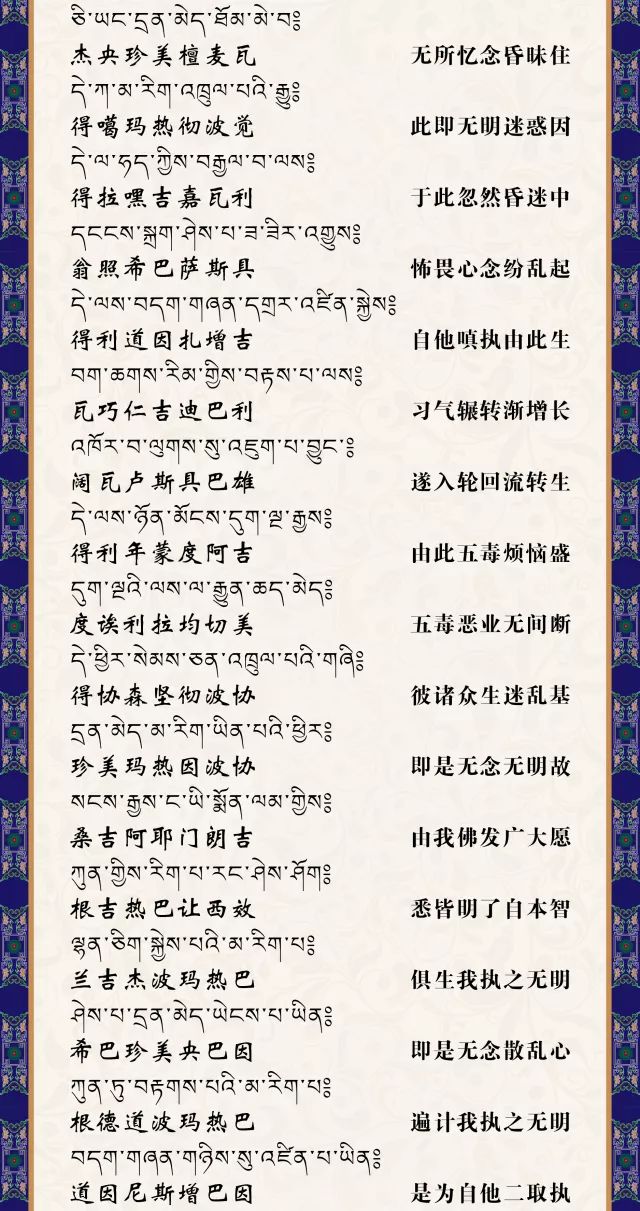 ཅི་ཡང་དྲན་མེད་ཐོམ་མེ་བ༔
杰央珍美檀麦瓦 无所忆念昏昧住
དེ་ཀ་མ་རིག་འཁྲུལ་པའི་རྒྱུ༔
得噶玛热彻波觉 此即无明迷惑因
དེ་ལ་ཧད་ཀྱིས་བརྒྱལ་བ་ལས༔
得拉嘿吉嘉瓦利 于此忽然昏迷中
དངངས་སྐྲག་ཤེས་པ་ཟ་ཟིར་འགྱུས༔
翁照希巴萨斯具 怖畏心念纷乱起
དེ་ལས་བདག་གཞན་དགྲར་འཛིན་སྐྱེས༔
得利道因扎增吉 自他嗔执由此生
བག་ཆགས་རིམ་གྱིས་བརྟས་པ་ལས༔
瓦巧仁吉迪巴利 习气辗转渐增长
འཁོར་བ་ལུགས་སུ་འཇུག་པ་བྱུང་༔
阔瓦卢斯具巴雄 遂入轮回流转生
དེ་ལས་ཉོན་མོངས་དུག་ལྔ་རྒྱས༔
得利年蒙度阿吉 由此五毒烦恼盛
དུག་ལྔའི་ལས་ལ་རྒྱུན་ཆད་མེད༔
度诶利拉均切美 五毒恶业无间断
དེ་ཕྱིར་སེམས་ཅན་འཁྲུལ་པའི་གཞི༔
得协森坚彻波协 彼诸众生迷乱基
དྲན་མེད་མ་རིག་ཡིན་པའི་ཕྱིར༔
珍美玛热因波协 即是无念无明故
སངས་རྒྱས་ང་ཡི་སྨོན་ལམ་གྱིས༔
桑吉阿耶门朗吉 由我佛发广大愿
ཀུན་གྱིས་རིག་པ་རང་ཤེས་ཤོག༔
根吉热巴让西效 悉皆明了自本智
ལྷན་ཅིག་སྐྱེས་པའི་མ་རིག་པ༔
兰吉杰波玛热巴 俱生我执之无明
ཤེས་པ་དྲན་མེད་ཡེངས་པ་ཡིན༔
希巴珍美央巴因 即是无念散乱心
ཀུན་ཏུ་བརྟགས་པའི་མ་རིག་པ༔
根德道波玛热巴 遍计我执之无明
བདག་གཞན་གཉིས་སུ་འཛིན་པ་ཡིན༔
道因尼斯增巴因 是为自他二取执